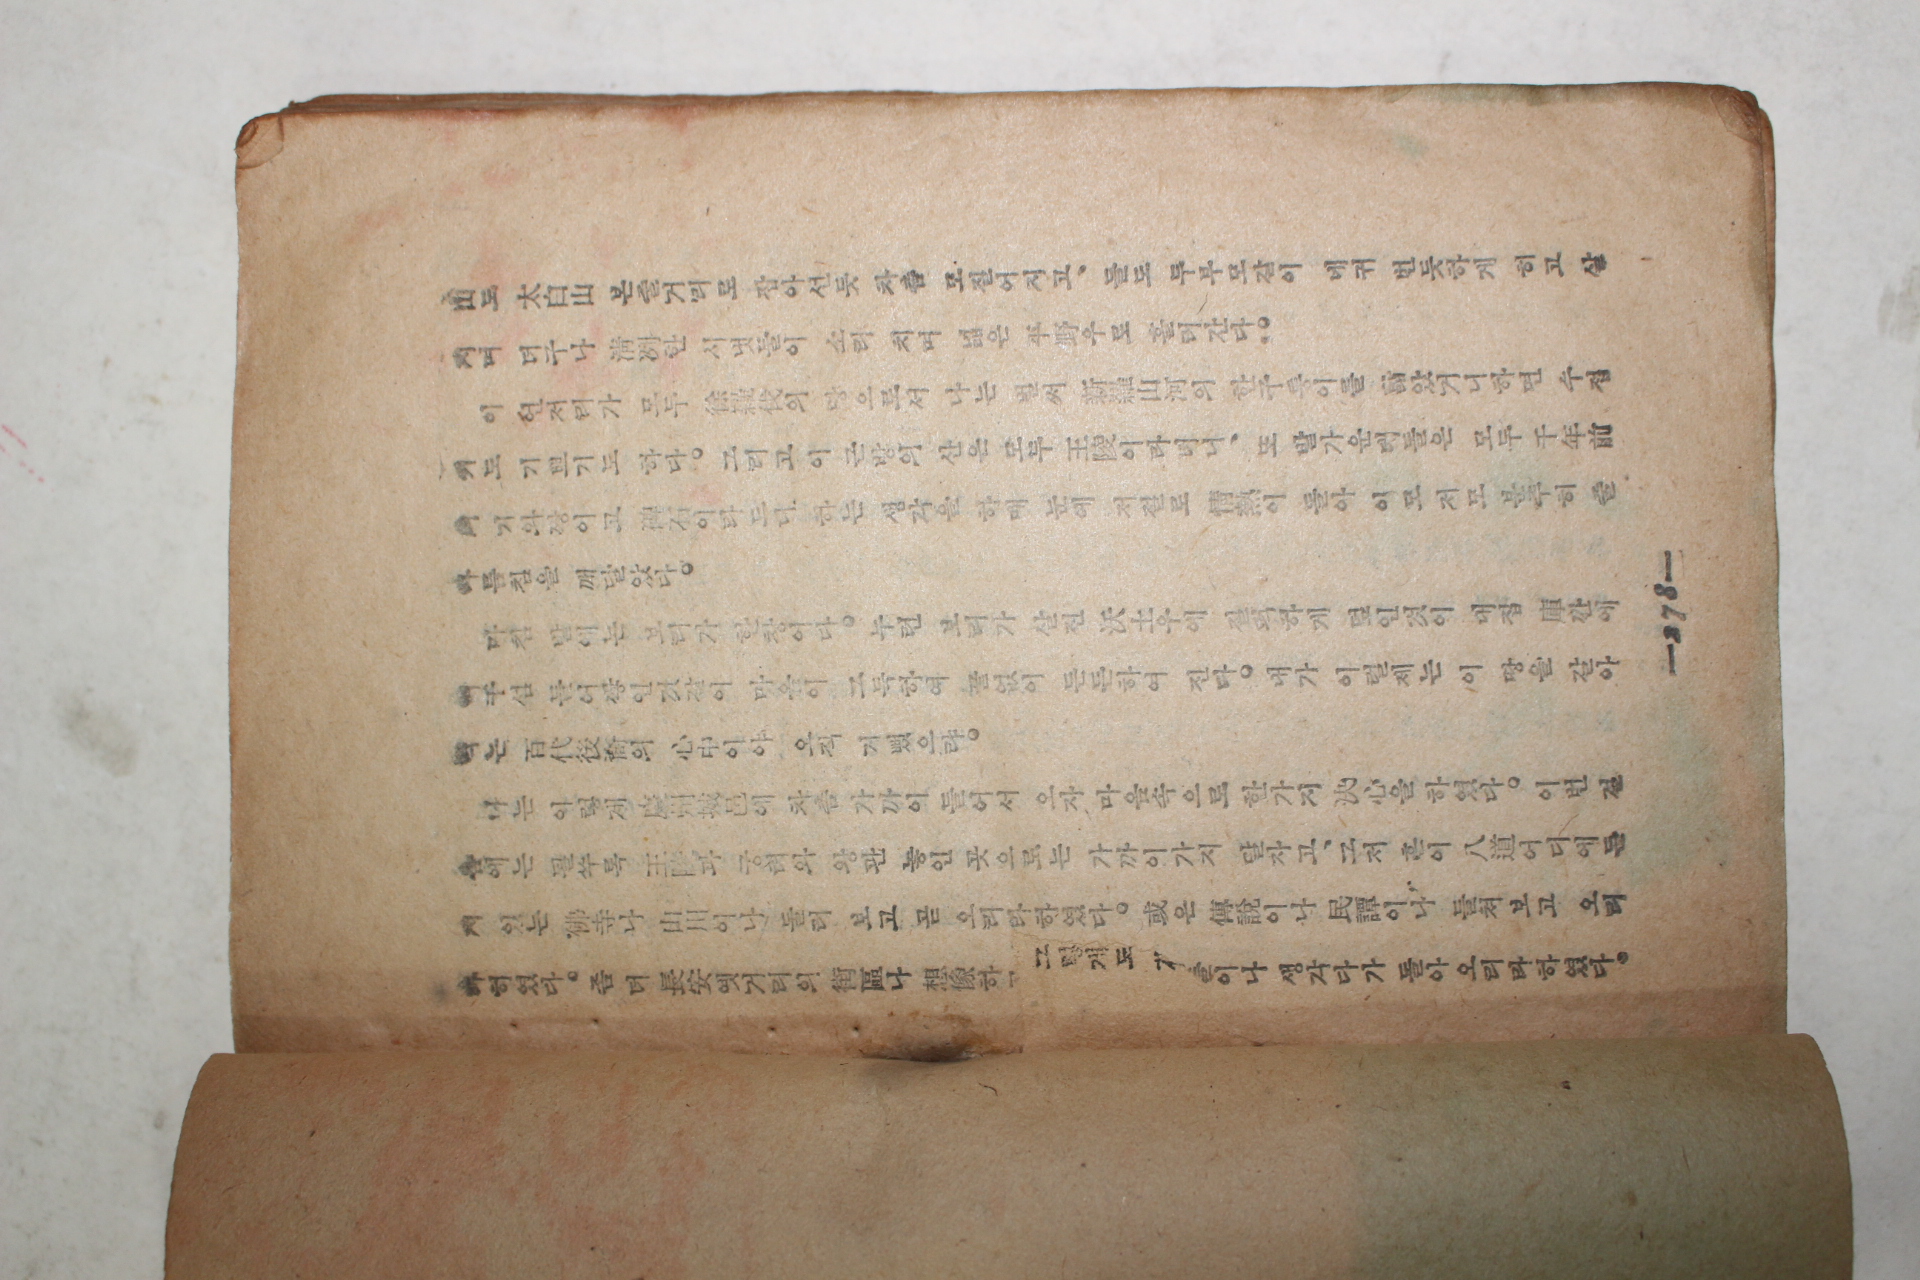 山도 太白山 본줄거리로 잡아선듯 차츰 모질어지고、들도 두부모같이 네귀 번듯하게 히고 살
지며 더구나 淸冽한 시냇물이 소리 치며 넓은 平野우로 흘러간다。
이 언저리가 모두 徐羅伐의 땅으로서 나는 벌써 新羅山河의 한구통이를 밟았거니하면 수접
기도 기쁘기도 하다。그리고 이 근방의 산은 모두 王陵이라더니、또 발가운데들은 모두 千年前
기와장이고 碑石이라드니 하는 생각을 하매 눈에 저절로 情熱이 돌아 이모 저모 분주히 줄
다름침을 깨달았다。
마침 밭에는 보리가 한창이다。누런 보리가 살진 沃土우에 질펀하게 덮인것이 내집 庫깐에
구섬 들어쌓인것같이 마음이 그득하여 끝없이 든든하여 진다。내가 이럴제는 이 땅을 갈아
먹는 百代後裔의 心中이야 오직 기뻤으랴。
나는 이렇게 慶州城邑에 차츰 가까이 들어서 오자 마음속으로 한가지 決心을 하였다。이번 걸
음에는 될쑤록 王陵과 궁허와 왕관 놓인 곳으로는 가까이가지 말자고、그저 흔이 八道어디에든
지 있는 佛寺나 山川이나 둘러 보고 곧 오리라하였다。或은 傳說이나 民譚이나 들쳐보고 오리
라하였다。좀 더 長安옛거리의 街區나 想像하 그렇게도 기 이나 생각다가 돌아오리라하였다。
—278—